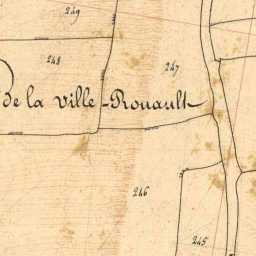 249
248
247
de la Ville-Rouault
246
245